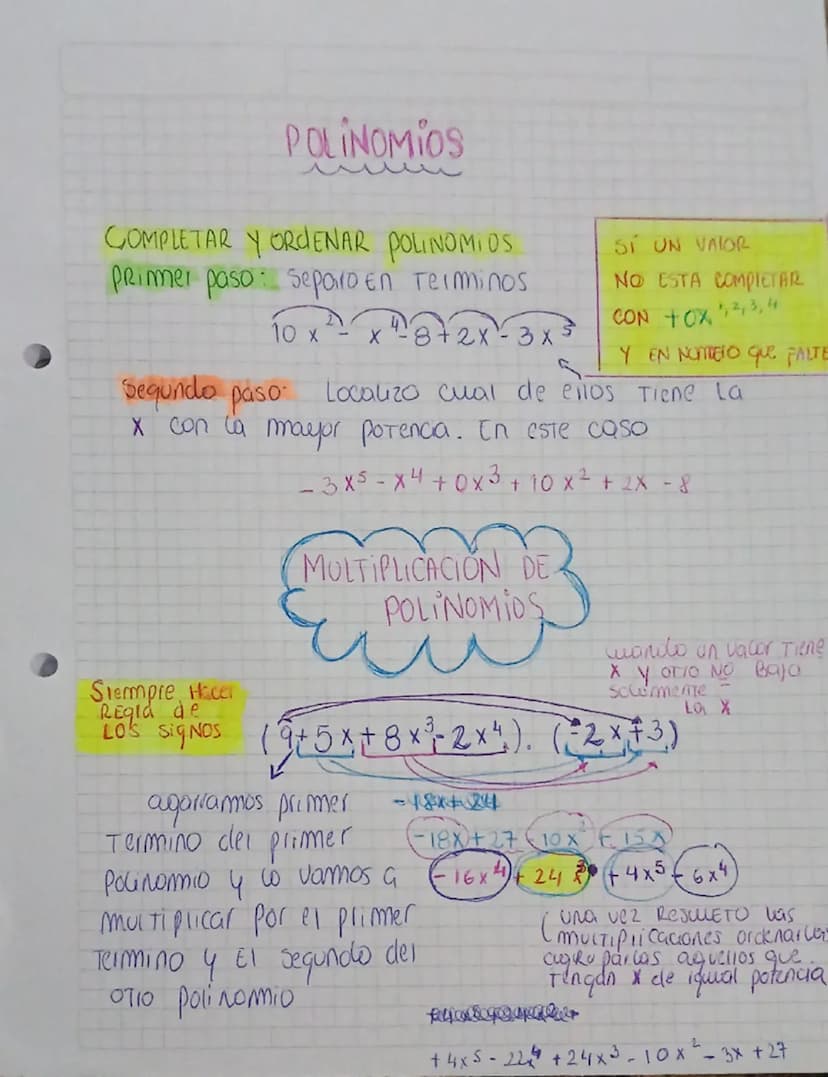 POLINOMIOS
COMPLETAR Y ORDENAR POLINOMIOS
primer paso: Separo en Terminos
10x² - x⁴ - 8 + 2x - 3x⁵
SI UN VALOR
NO ESTA COMPLETAR
CON +0x¹,²,³,⁴
Y EN NUMERO QUE FALTE
Segundo paso: Localizo cual de ellos Tiene la
x con la mayor potencia. En este caso
-3x⁵ - x⁴ + 0x³ + 10x² + 2x - 8
MULTIPLICACION DE
POLINOMIOS
cuando un valor Tiene
x y otro NO Baja
solamente
La x
Siempre Hacer
REGla de
LOS SIGNOS
(9 + 5x + 8x³ - 2x⁴) . (-2x + 3)
agarramos primer
Termino del primer
Polinomio y lo vamos a
multiplicar por el primer
Termino y El segundo del
otro polinomio
-18x + 24
-18x + 27 - 10x² + 15x
-16x⁴ + 24x³ + 4x⁵ - 6x⁴
(una vez Resuelto las
multiplicaciones ordenarlas
agruparlas aquellos que
Tengan x de igual potencia
+4x⁵ - 22x⁴ + 24x³ - 10x² - 3x + 27